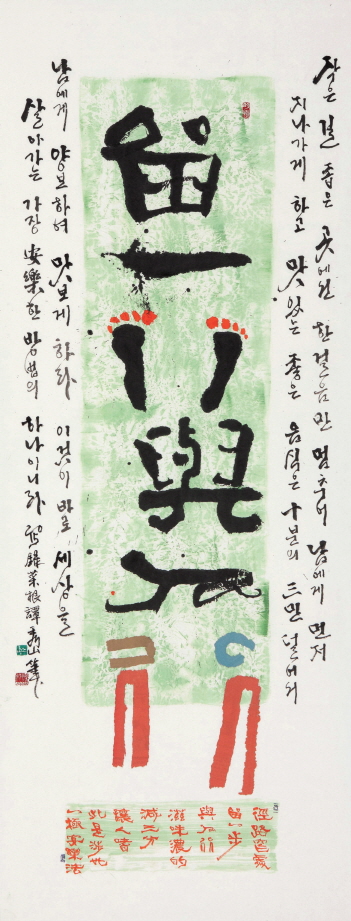 작은 길 좁은 곳에선 한 걸음만 멈추어 남에게 먼저
지나가게 하고 맛있는 좋은 음식은 十분의 三만 덜어서
留一
與人
남에게 양보하여 맛보게 하라 이것이 바로 세상을
살아가는 가장 安樂한 방법의 하나이니라 錄菜根譚
徑路窄處
留一步
與人行
滋味濃的
減三分
讓人嗜
此是涉世
一極安樂法